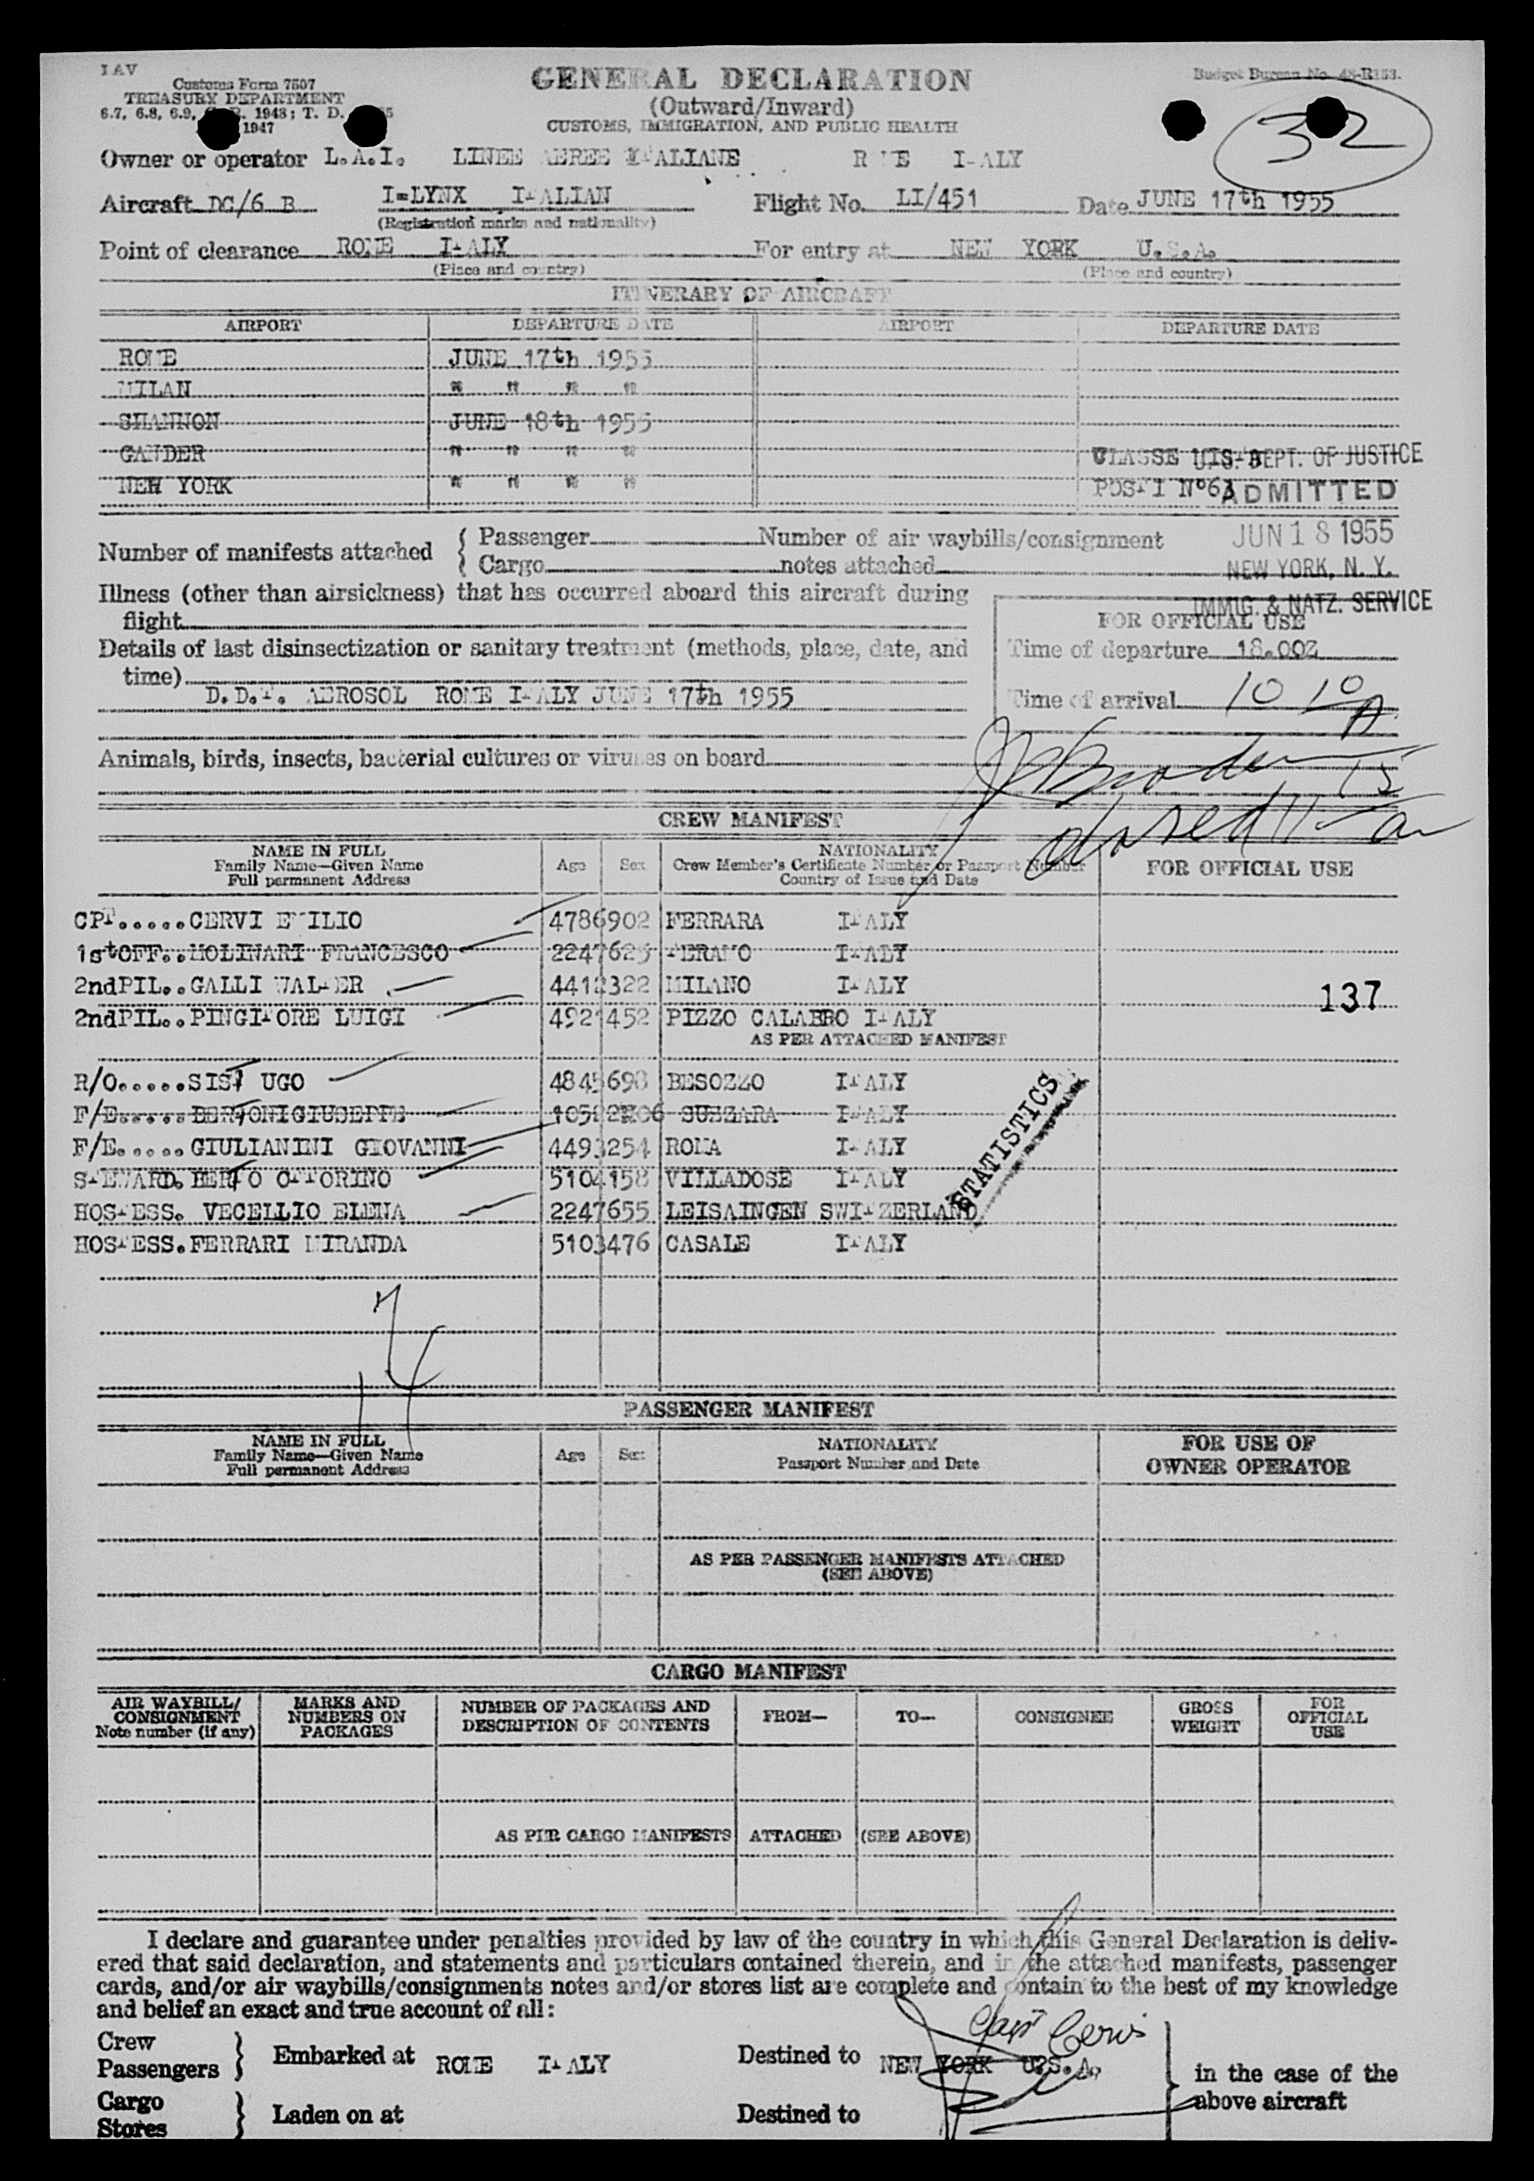 IAV
Customs Form 7507
TREASURY DEPARTMENT
6.7, 6.8, 6.9, 1943; T. D.
1947
GENERAL DECLARATION
(Outward/Inward)
CUSTOMS, IMMIGRATION, AND PUBLIC HEALTH
Budget Bureau No.
32
Owner or operator L.A.I. LINEE AEREE ITALIANE ROME ITALY
Aircraft DC/6 B I=LYNX ITALIAN Flight No. LI/451 Date JUNE 17th 1955
(Registration marks and nationality)
Point of clearance ROME ITALY For entry at NEW YORK U.S.A.
(Place and country) (Place and country)
ITINERARY OF AIRCRAFT
AIRPORT DEPARTURE DATE AIRPORT DEPARTURE DATE
ROME JUNE 17th 1955
MILAN " " " "
SHANNON JUNE 18th 1955
GANDER " " " "
NEW YORK " " " "
CLASSE
POSTI N°
U.S. DEPT. OF JUSTICE
ADMITTED
JUN 18 1955
NEW YORK, N. Y.
IMMIG. & NATZ. SERVICE
Number of manifests attached { Passenger Number of air waybills/consignment
Cargo notes attached
Illness (other than airsickness) that has occurred aboard this aircraft during
flight
Details of last disinsectization or sanitary treatment (methods, place, date, and
time)
D.D.T. AEROSOL ROME ITALY JUNE 17th 1955
FOR OFFICIAL USE
Time of departure 18.00Z
Time of arrival 10 10 A
Animals, birds, insects, bacterial cultures or viruses on board
CREW MANIFEST
NAME IN FULL
Family Name—Given Name
Full permanent Address
Age Sex
NATIONALITY
Crew Member's Certificate Number or Passport Number
Country of Issue and Date
FOR OFFICIAL USE
CPT.....CERVI EMILIO 4786902 FERRARA ITALY
1stOFF..MOLINARI FRANCESCO 2247625 TERAMO ITALY
2ndPIL..GALLI WALTER 4412322 MILANO ITALY
2ndPIL..PINGITORE LUIGI 4921452 PIZZO CALABRO ITALY
137
AS PER ATTACHED MANIFEST
R/O.....SISTI UGO 4845698 BESOZZO ITALY
F/E.....BERTONI GIUSEPPE SUZZARA ITALY
F/E.....GIULIANINI GIOVANNI 4493254 ROMA ITALY
STEWARD. BERTO OTTORINO 5104158 VILLADOSE ITALY
HOSTESS. VECELLIO ELENA 2247655 LEISAINGEN SWITZERLAND
HOSTESS.FERRARI MIRANDA 5103476 CASALE ITALY
STATISTICS
PASSENGER MANIFEST
NAME IN FULL
Family Name—Given Name
Full permanent Address
Age Sex
NATIONALITY
Passport Number and Date
FOR USE OF
OWNER OPERATOR
AS PER PASSENGER MANIFESTS ATTACHED
(SEE ABOVE)
CARGO MANIFEST
AIR WAYBILL/
CONSIGNMENT
Note number (if any)
MARKS AND
NUMBERS ON
PACKAGES
NUMBER OF PACKAGES AND
DESCRIPTION OF CONTENTS
FROM—
TO—
CONSIGNEE
GROSS
WEIGHT
FOR
OFFICIAL
USE
AS PER CARGO MANIFESTS ATTACHED (SEE ABOVE)
I declare and guarantee under penalties provided by law of the country in which this General Declaration is deliv-
ered that said declaration, and statements and particulars contained therein, and in the attached manifests, passenger
cards, and/or air waybills/consignments notes and/or stores list are complete and contain to the best of my knowledge
and belief an exact and true account of all:
Capt Cervi
Crew
Passengers } Embarked at ROME ITALY Destined to NEW YORK U.S.A.
in the case of the
above aircraft
Cargo
Stores } Laden on at Destined to